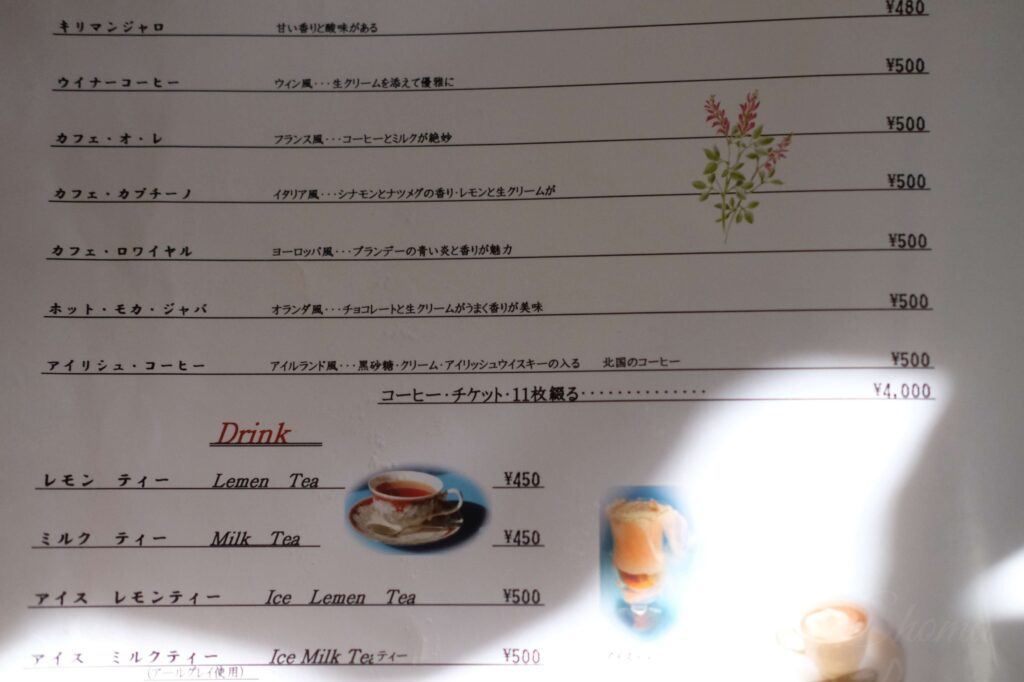 キリマンジャロ 甘い香りと酸味がある ¥480
ウイナーコーヒー ウィン風・・・生クリームを添えて優雅に ¥500
カフェ・オ・レ フランス風・・・コーヒーとミルクが絶妙 ¥500
カフェ・カプチーノ イタリア風・・・シナモンとナツメグの香り・レモンと生クリームが ¥500
カフェ・ロワイヤル ヨーロッパ風・・・ブランデーの青い炎と香りが魅力 ¥500
ホット・モカ・ジャバ オランダ風・・・チョコレートと生クリームがうまく香りが美味 ¥500
アイリシュ・コーヒー アイルランド風・・・黒砂糖・クリーム・アイリッシュウイスキーの入る 北国のコーヒー ¥500
コーヒー・チケット・11枚綴る・・・・・・・・・・・・・・ ¥4,000
Drink
レモン ティー Lemen Tea ¥450
ミルク ティー Milk Tea ¥450
アイス レモンティー Ice Lemen Tea ¥500
アイス ミルクティー Ice Milk Teaティー ¥500
(アールグレイ使用)